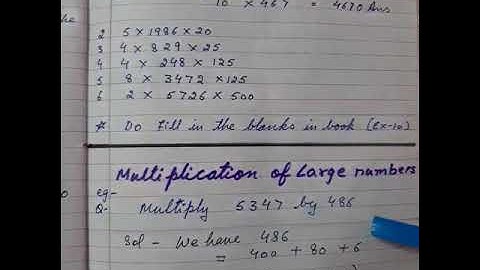 10 × 467 = 4670 Ans
2 5 × 1986 × 20
3 4 × 829 × 25
4 4 × 248 × 125
5 8 × 3472 × 125
6 2 × 5726 × 500
* Do Fill in the blanks in book (Ex-10)
Multiplication of Large numbers
eg-
Q- Multiply 5347 by 486
Sol - We have 486
= 400 + 80 + 6